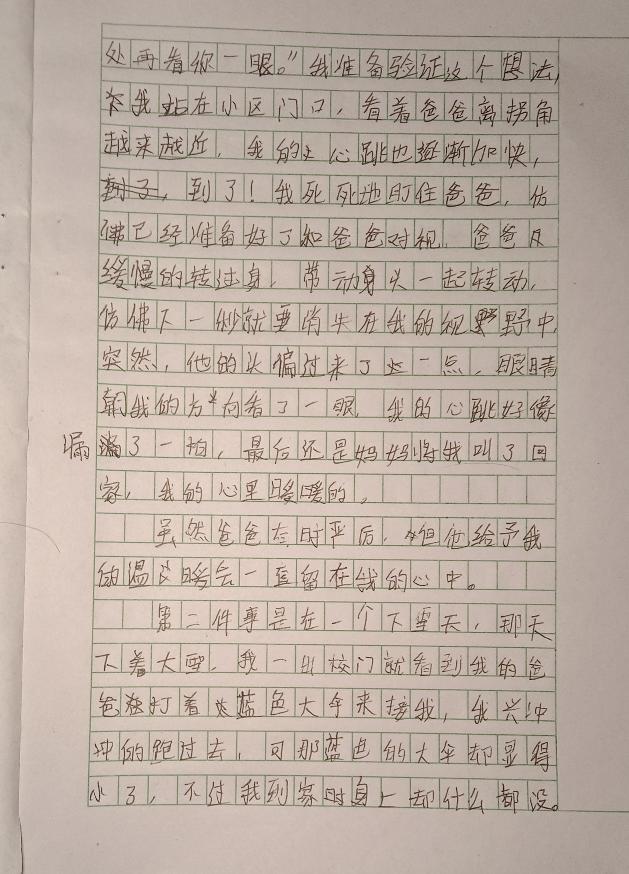 处再看你一眼。”我准备验证这个想法,
我站在小区门口，看着爸爸离拐角
越来越近，我的心跳也逐渐加快，
到了，到了！我死死地盯住爸爸，仿
佛已经准备好了和爸爸对视，爸爸
缓慢的转过身，带动身头一起转动，
仿佛下一秒就要消失在我的视野中，
突然，他的头偏过来了一点，眼睛
朝我的方向看了一眼，我的心跳好像
漏了一拍，最后还是妈妈将我叫了回
家，我的心里暖暖的。
虽然爸爸在时严后，但他给予我
的温暖会一直留在我的心中。
第二件事是在一个下雪天，那天
下着大雪，我一出校门就看到我的爸
爸打着蓝色大伞来接我，我兴冲
冲的跑过去，可那蓝色的大伞却显得
小了，不过我到家时身上却什么都没。